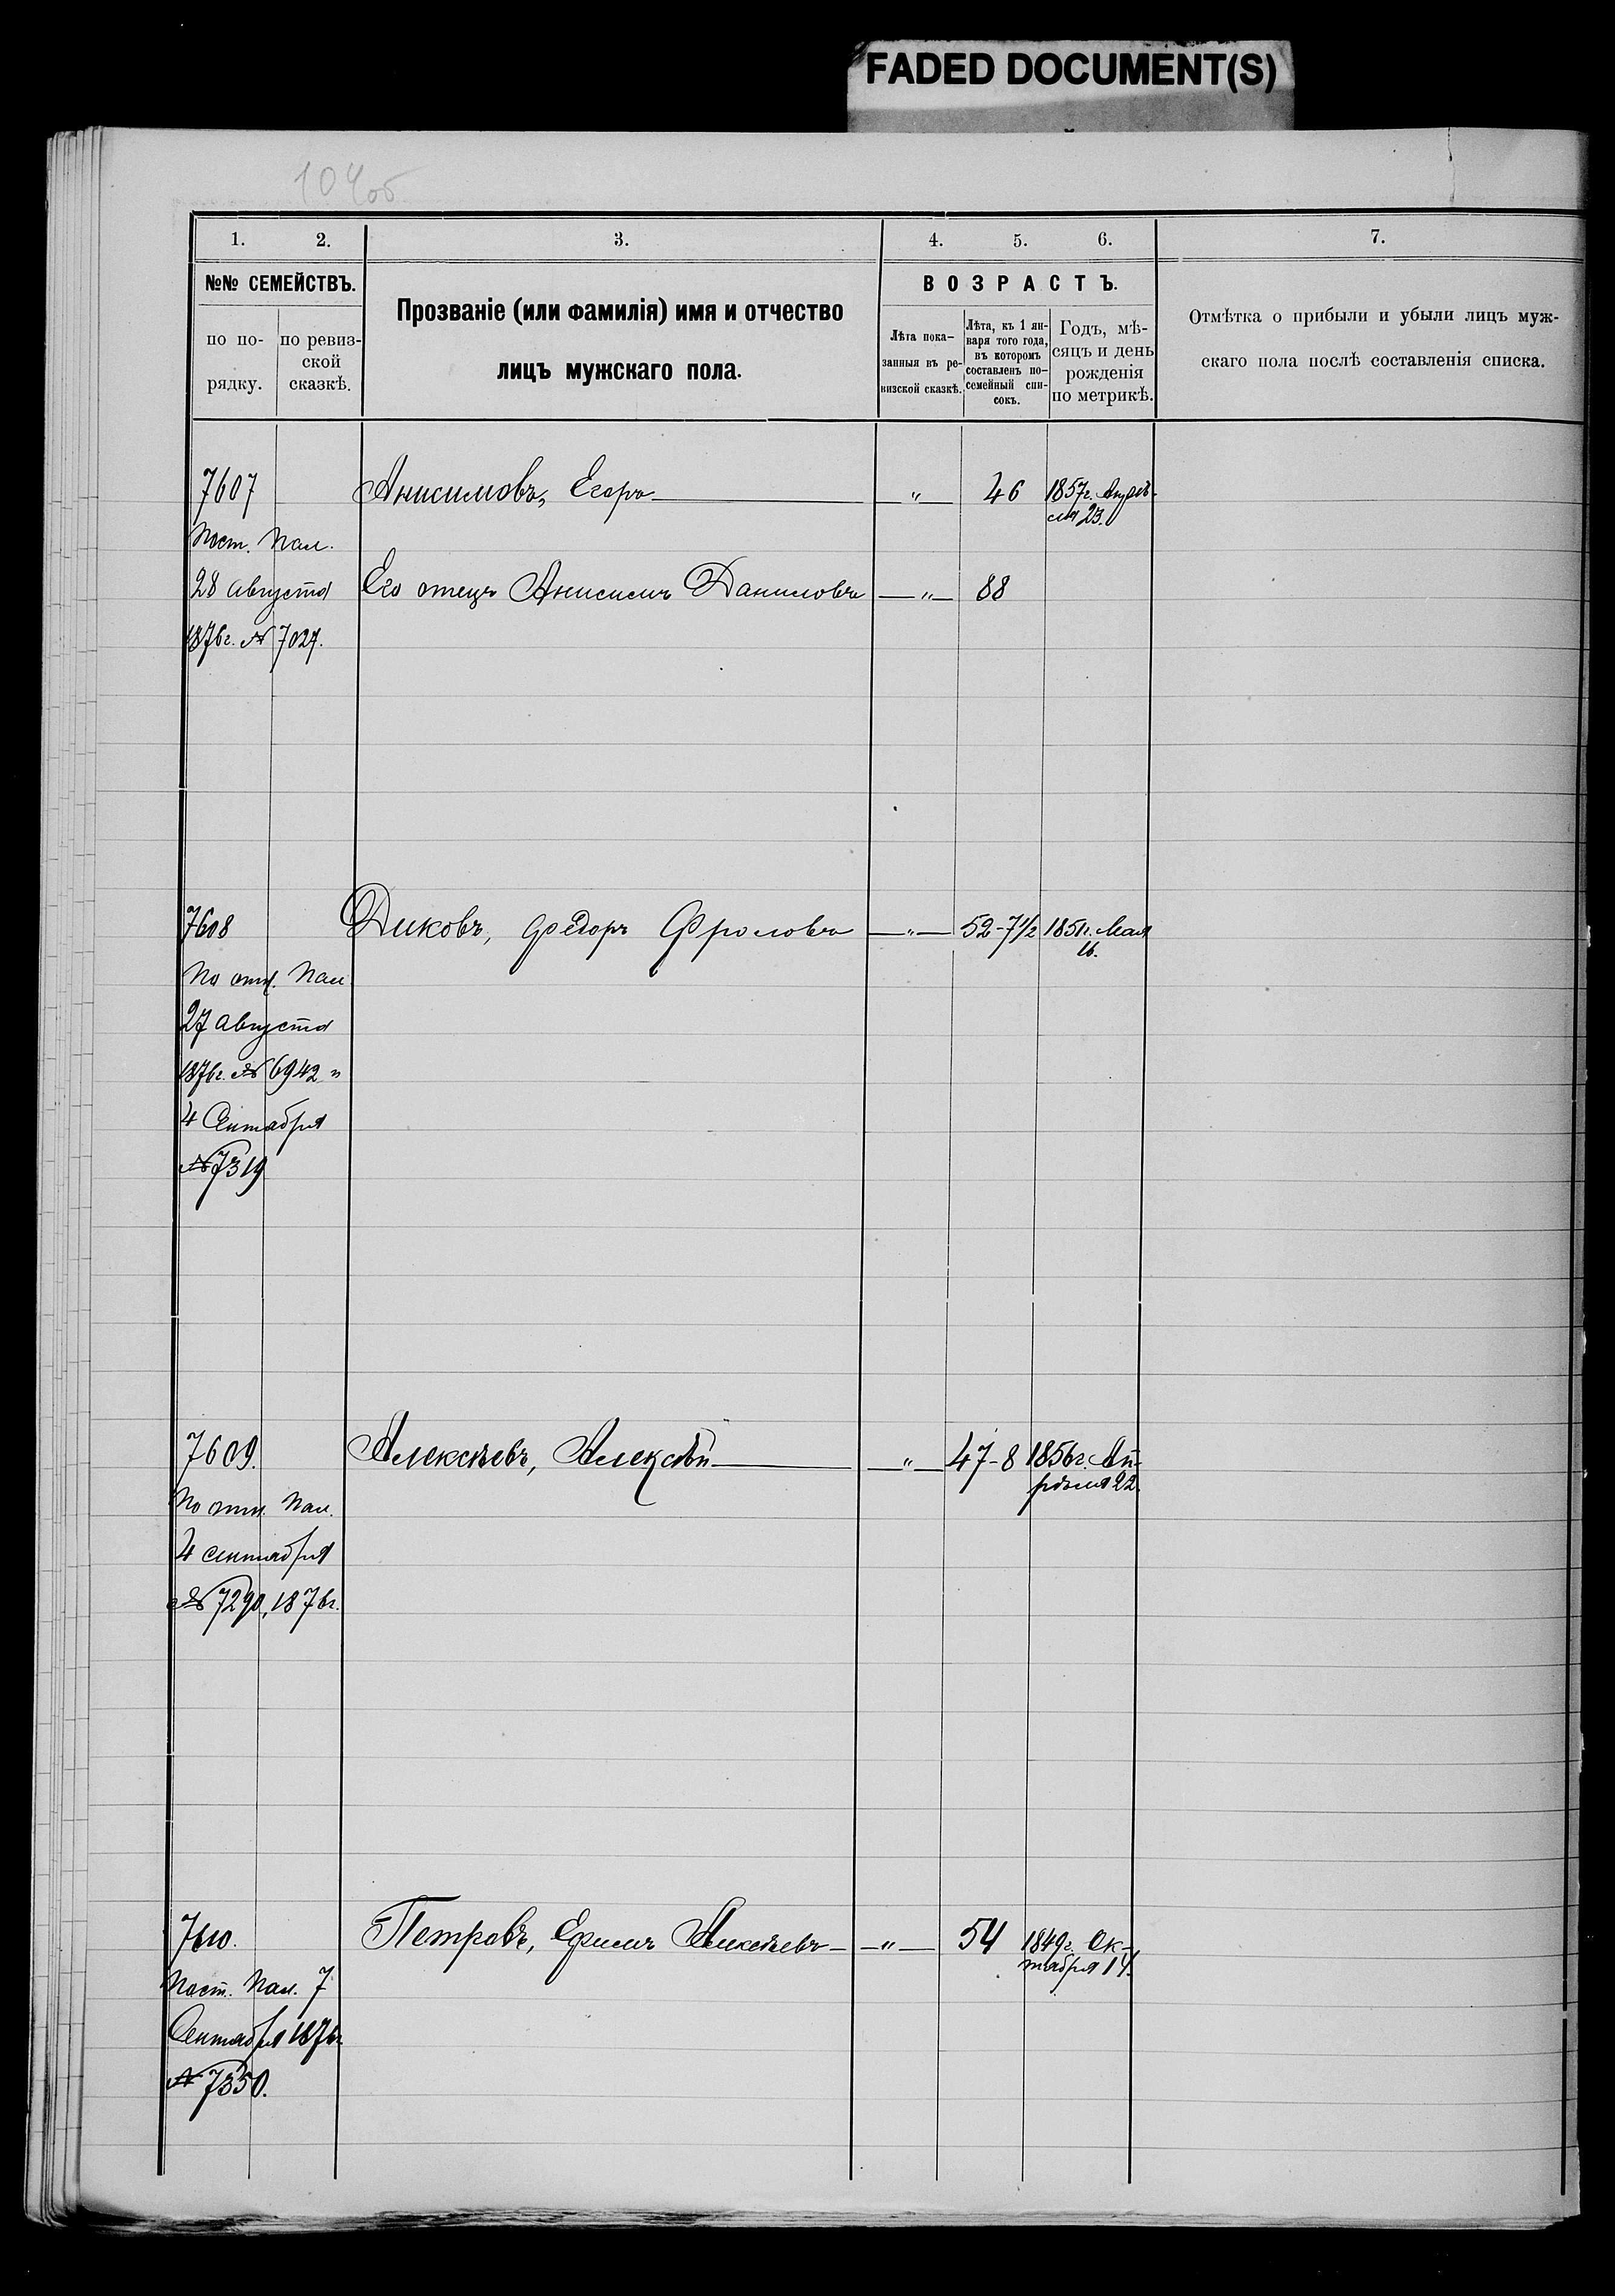 FADED DOCUMENT(S)
104об
1. 2. 3. 4. 5. 6. 7.
№№ СЕМЕЙСТВЪ.
по по-
рядку.
по ревиз-
ской
сказкѣ.
Прозваніе (или фамилія) имя и отчество
лицъ мужскаго пола.
ВОЗРАСТЪ.
Лѣта пока-
занныя въ ре-
визской сказкѣ.
Лѣта, къ 1 ян-
варя того года,
въ которомъ
составленъ по-
семейный спи-
сокъ.
Годъ, мѣ-
сяцъ и день
рожденія
по метрикѣ.
Отмѣтка о прибыли и убыли лицъ муж-
скаго пола послѣ составленія списка.
7607 Анисимовъ, Егоръ — " 46 1857г. Апрѣ-
ля 23.
Пост. Пал.
28 Августа Его отецъ Анисимъ Даниловъ — " — 88
1876г. № 7027.
7608 Диковъ, Федоръ Фроловъ — " — 52-7½ 1851г. Мая
16.
По отн. Пал.
27 Августа
1876г. № 6942 и
4 Сентября
№ 7319
7609. Алексѣевъ, Алексѣй — " — 47-8 1856г. Ап-
рѣля 22.
По отн. Пал.
4 сентября
№ 7290, 1876г.
7610. Петровъ, Ефимъ Алексѣевъ — " — 54 1849г. Ок-
тября 14.
Пост. Пал. 7
Сентября 1876г.
№ 7350.